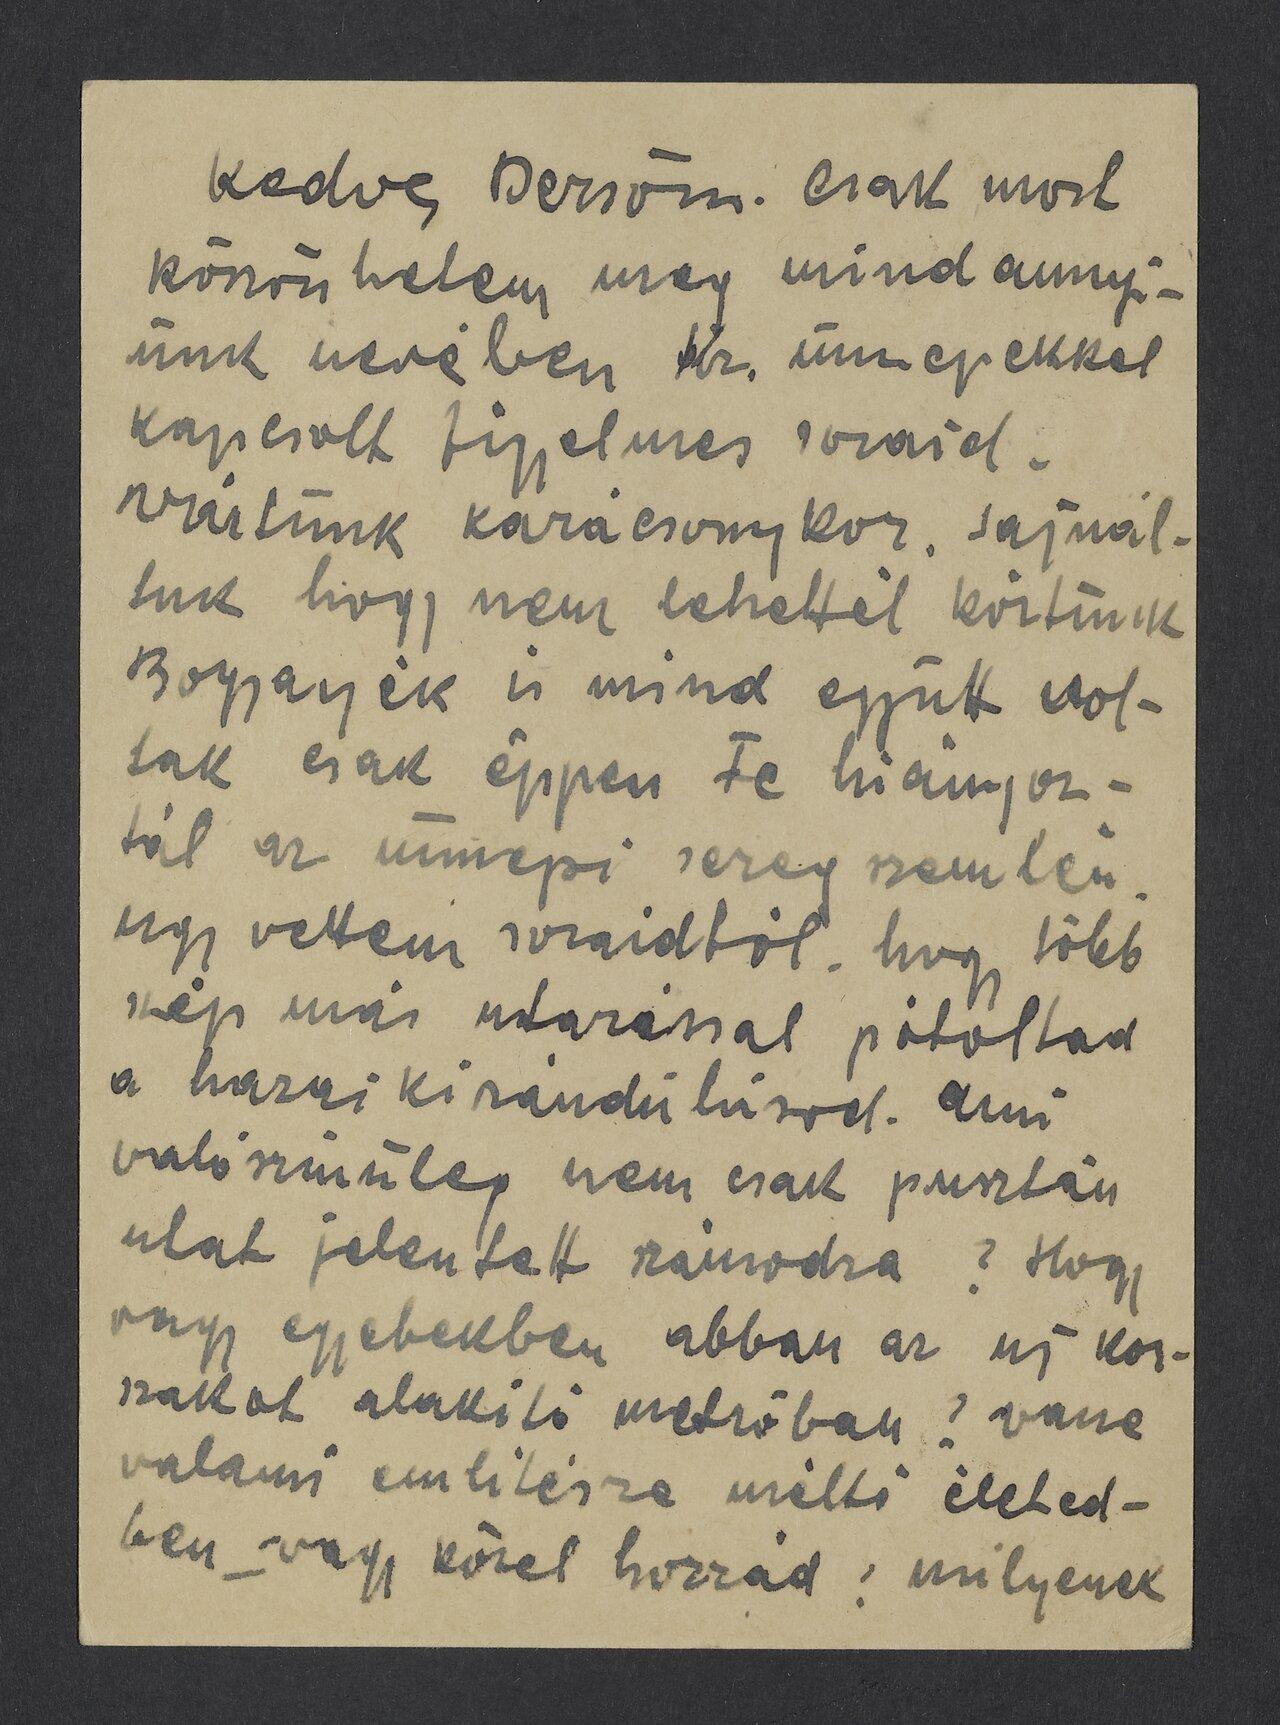 Kedves Dersőm. Csak most
köszönhetem meg mindannyi-
ünk nevében Kr. ünnepekkel
kapcsolt figyelmes soraid.
Vártunk karácsonykor. Sajnál-
tuk hogy nem lehettél körtünk
Bogyayék is mind együtt vol-
tak csak éppen Te hiányoz-
tál az ünnepi seregszemlén.
ugy vettem soraidtól. hogy több
szép más utazással pótoltad
a hazai kirándulásod. Ami
valószinüleg nem csak pusztán
utat jelentett számodra ? Hogy
vagy egyebekben abban az uj kor-
szakot alakitó metróban ? vane
valami emlitésre méltó életed-
ben – vagy közel hozzád ? milyenek